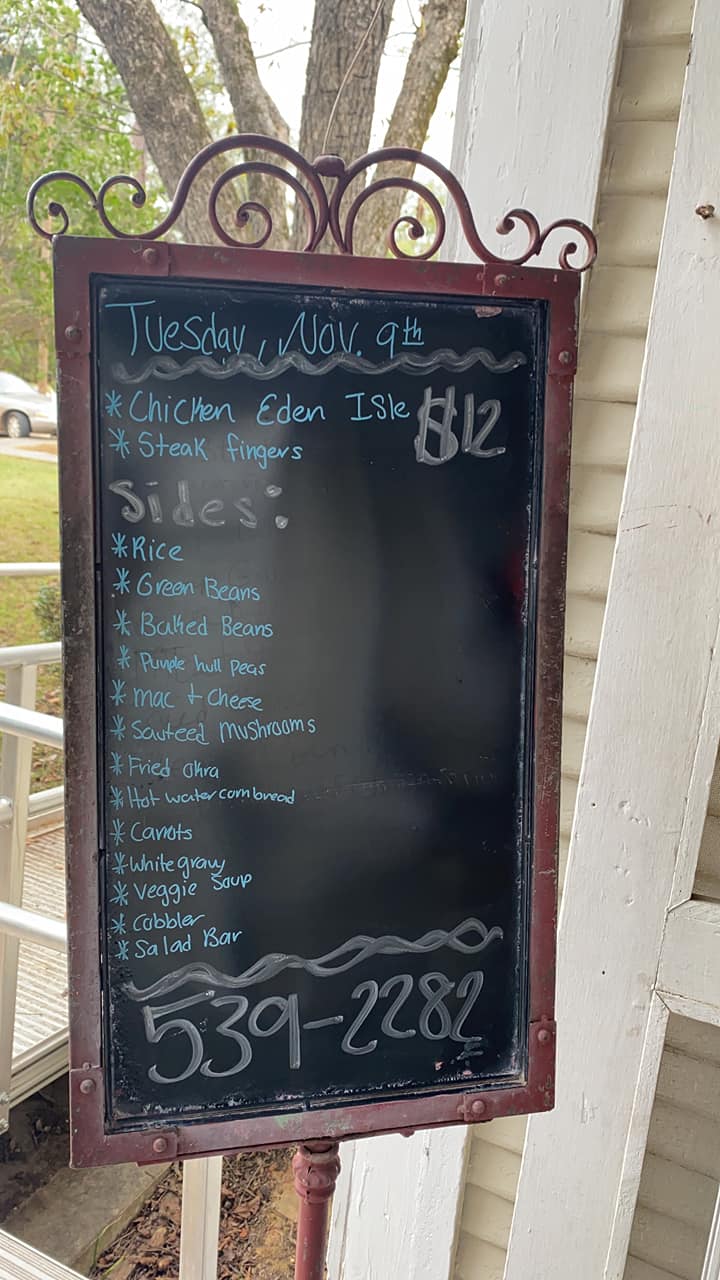 Tuesday, Nov. 9th
* Chicken Eden Isle $12
* Steak fingers
Sides:
* Rice
* Green Beans
* Baked Beans
* Purple hull peas
* mac + cheese
* Sauteed mushrooms
* Fried okra
* Hot water cornbread
* Carrots
* White gravy
* Veggie Soup
* Cobbler
* Salad Bar
539-2282